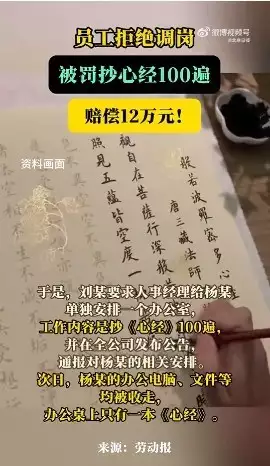 微博视频号
员工拒绝调岗
被罚抄心经100遍
赔偿12万元！
资料画面
般若波羅蜜多心
唐三藏法師
觀自在菩薩行深般
照見五蘊皆空度一
于是，刘某要求人事经理给杨某
单独安排一个办公室，
工作内容是抄《心经》100遍，
并在全公司发布公告，
通报对杨某的相关安排。
次日，杨某的办公电脑、文件等
均被收走，
办公桌上只有一本《心经》。
来源：劳动报